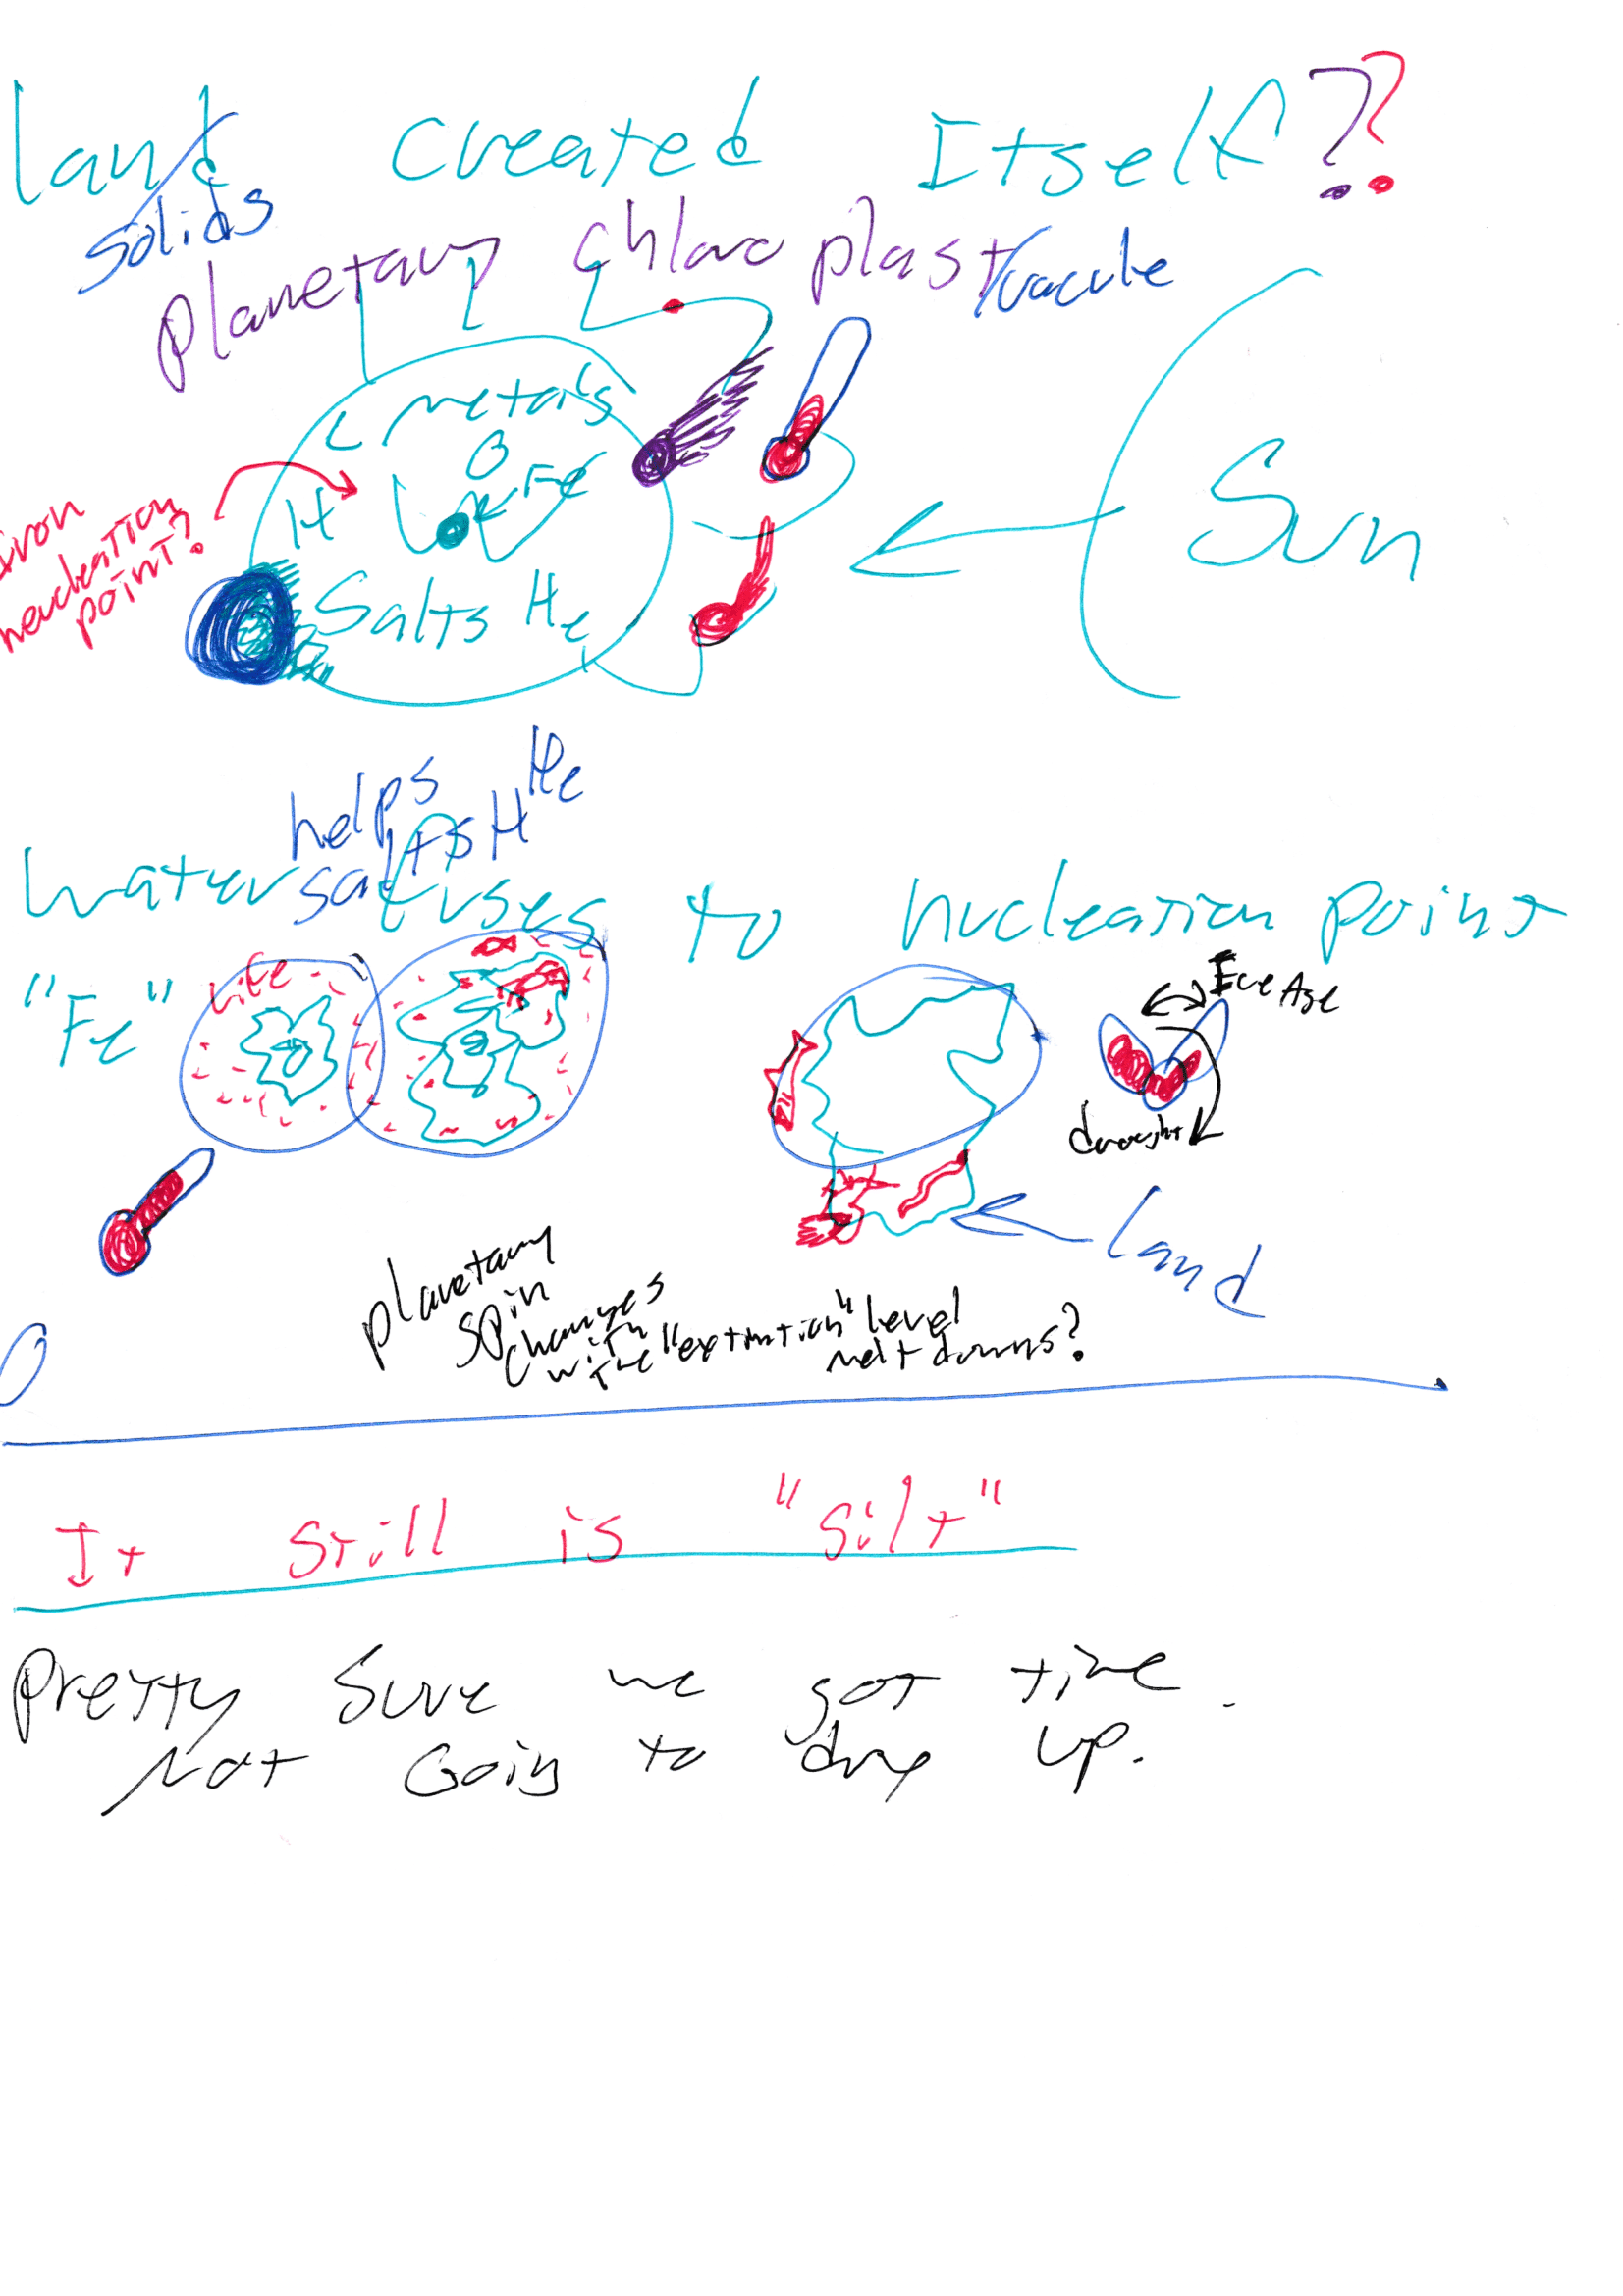 land created Itself??
solids
planetary chloroplast/vacule
L metals
O
Fe
H
Iron
nucleation
point?
Salts He
Sun
helps
salts H He
water fuses to nucleation point
"Fe" life
Ice Age
drought
land
planetary
spin
changes
with "extintion" level
the melt downs?
It still is "silt"
Pretty Sure we got time.
Not Going to dry up.